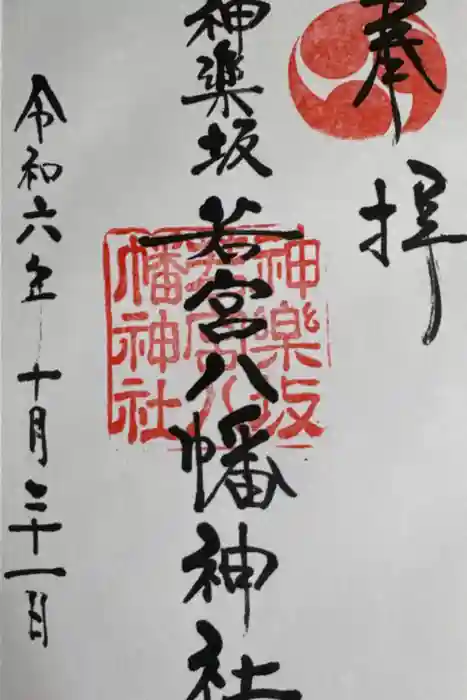 奉拝
神楽坂 若宮八幡神社
神樂坂
若宮八
幡神社
令和六年十月三十一日